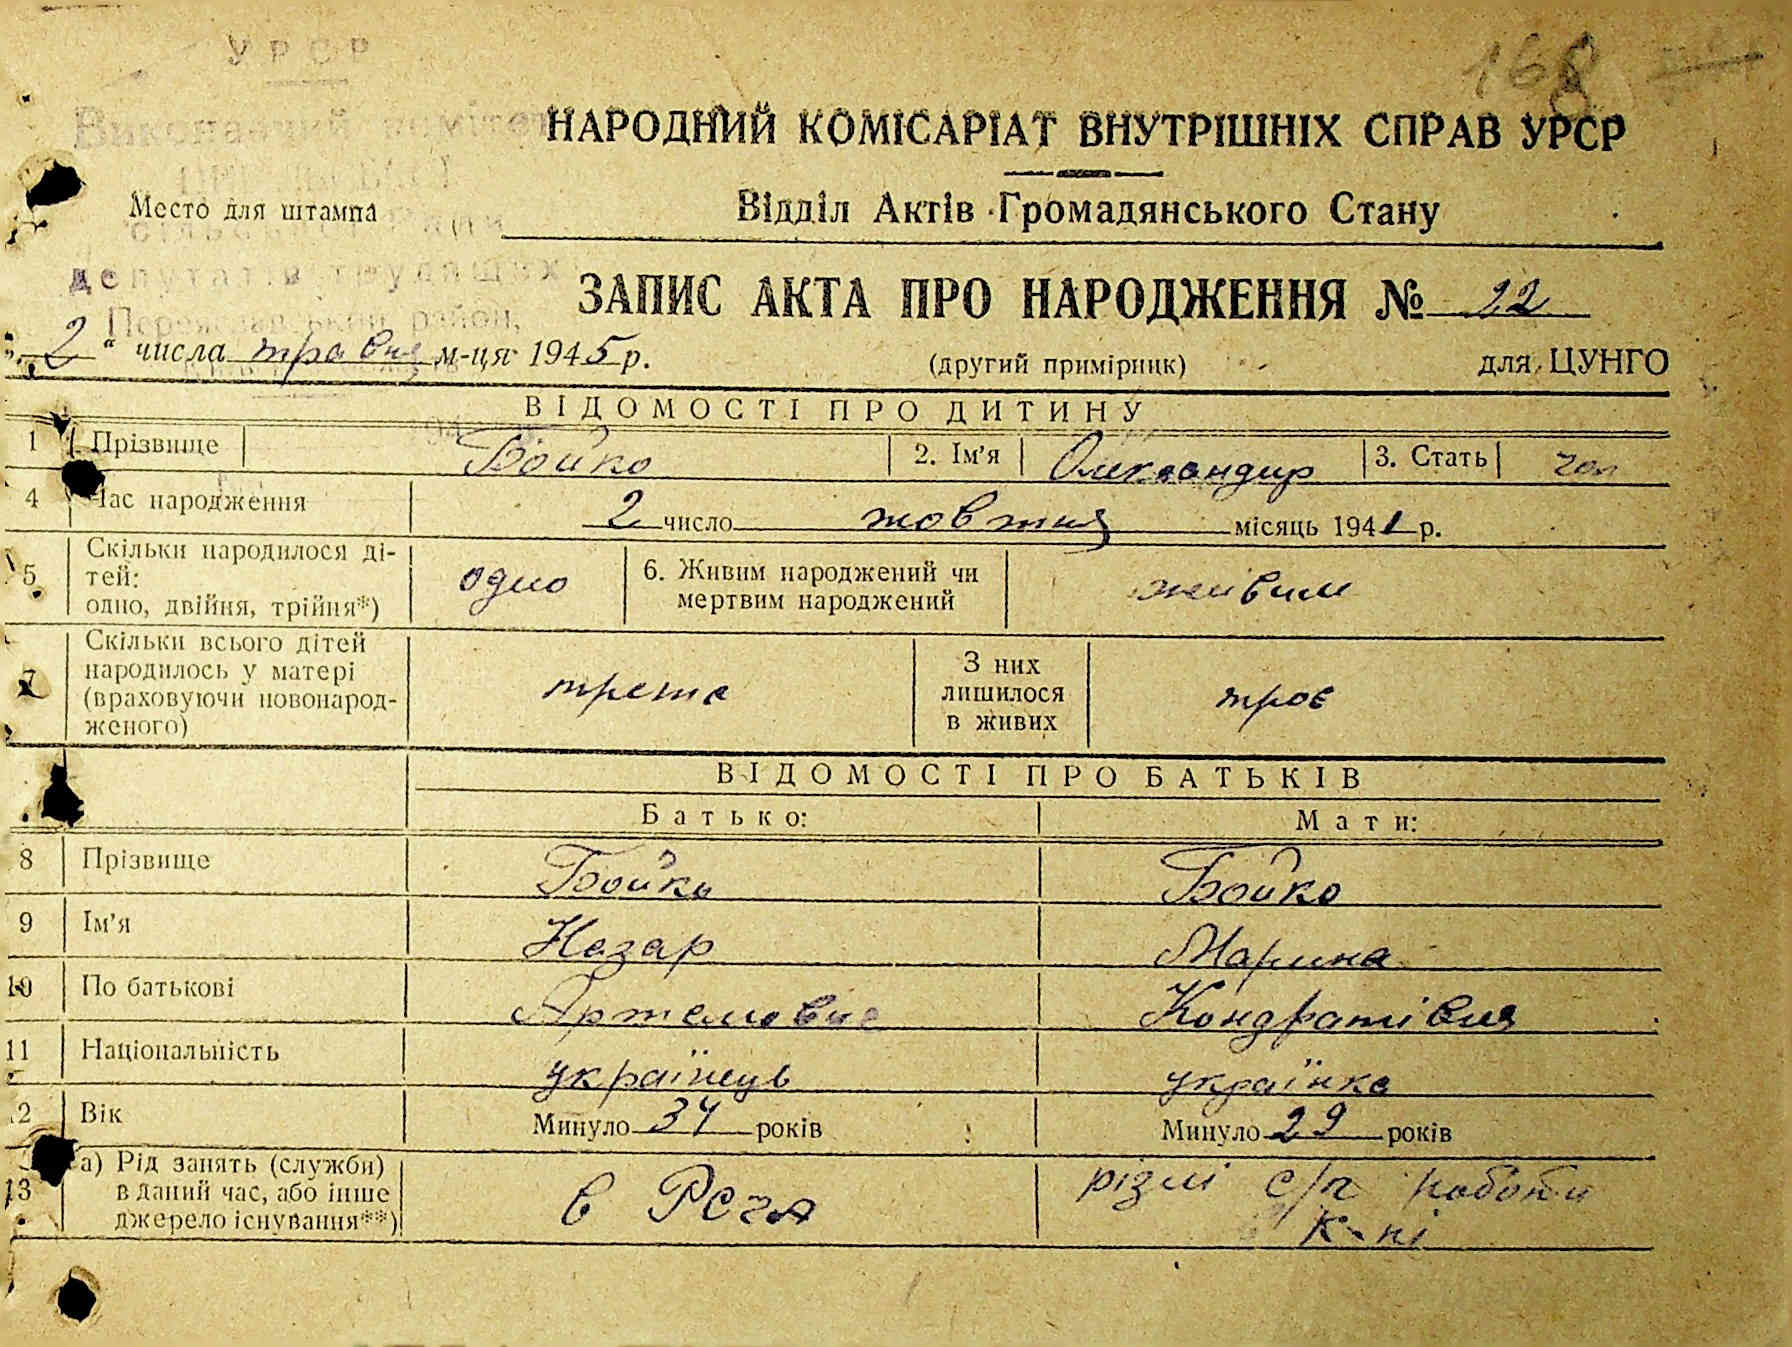 168
УРСР
Виконавчий комітет
НАРОДНИЙ КОМІСАРІАТ ВНУТРІШНІХ СПРАВ УРСР
Место для штампа
Відділ Актів Громадянського Стану
депутатів трудящих
ЗАПИС АКТА ПРО НАРОДЖЕННЯ № 22
район,
„2“ числа травня м-ця 1945 р. (другий примірник) для ЦУНГО
ВІДОМОСТІ ПРО ДИТИНУ
1 Прізвище Бойко 2. Ім’я Олександр 3. Стать чол
4 Час народження 2 число жовтня місяць 1941 р.
5 Скільки народилося ді-
тей:
одно, двійня, трійня*) одно 6. Живим народжений чи
мертвим народжений живим
7 Скільки всього дітей
народилось у матері
(враховуючи новонарод-
женого) третє З них
лишилося
в живих троє
ВІДОМОСТІ ПРО БАТЬКІВ
Батько: Мати:
8 Прізвище Бойко Бойко
9 Ім’я Назар Марина
10 По батькові Артемович Кондратівня
11 Національність українець українка
12 Вік Минуло 34 років Минуло 29 років
13 а) Рід занять (служби)
в даний час, або інше
джерело існування**) в РСЧА різні с/г роботи
к-пі